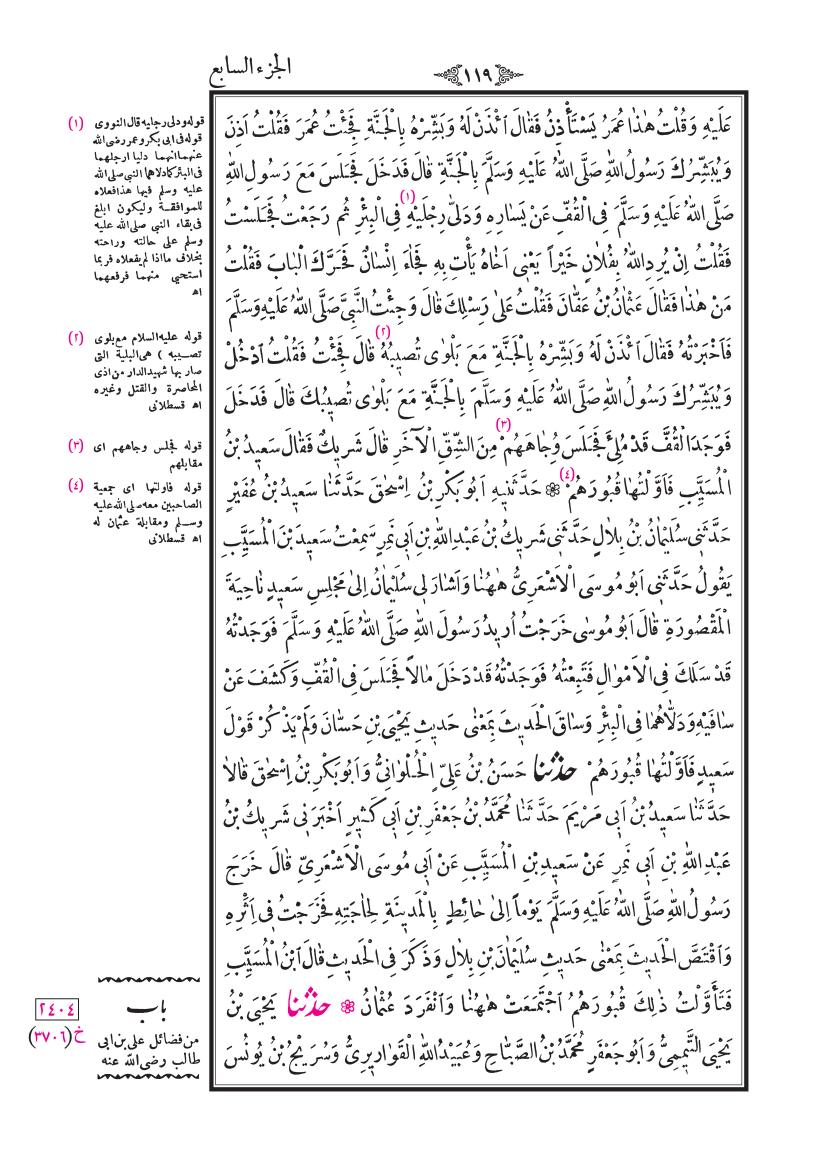 ١١٩
الجزء السابع
عَلَيْهِ وَقُلْتُ هٰذَا عُمَرُ يَسْتَأْذِنُ فَقَالَ ٱئْذَنْ لَهُ وَبَشِّرْهُ بِالْجَنَّةِ فَجِئْتُ عُمَرَ فَقُلْتُ اَذِنَ
وَيُبَشِّرُكَ رَسُولُ اللّٰهِ صَلَّى اللّٰهُ عَلَيْهِ وَسَلَّمَ بِالْجَنَّةِ قَالَ فَدَخَلَ فَجَلَسَ مَعَ رَسُولِ اللّٰهِ
صَلَّى اللّٰهُ عَلَيْهِ وَسَلَّمَ فِى الْقُفِّ عَنْ يَسَارِهِ وَدَلّٰى رِجْلَيْهِ (١) فِى الْبِئْرِ ثُمَّ رَجَعْتُ فَجَلَسْتُ
فَقُلْتُ اِنْ يُرِدِ اللّٰهُ بِفُلَانٍ خَيْراً يَعْنِى اَخَاهُ يَأْتِ بِهِ فَجَاءَ اِنْسَانٌ فَحَرَّكَ الْبَابَ فَقُلْتُ
مَنْ هٰذَا فَقَالَ عُثْمَانُ بْنُ عَفَّانَ فَقُلْتُ عَلٰى رِسْلِكَ قَالَ وَجِئْتُ النَّبِىَّ صَلَّى اللّٰهُ عَلَيْهِ وَسَلَّمَ
فَاَخْبَرْتُهُ فَقَالَ ٱئْذَنْ لَهُ وَبَشِّرْهُ بِالْجَنَّةِ مَعَ بَلْوٰى تُصِيبُهُ (٢) قَالَ فَجِئْتُ فَقُلْتُ ٱدْخُلْ
وَيُبَشِّرُكَ رَسُولُ اللّٰهِ صَلَّى اللّٰهُ عَلَيْهِ وَسَلَّمَ بِالْجَنَّةِ مَعَ بَلْوٰى تُصِيبُكَ قَالَ فَدَخَلَ
فَوَجَدَ الْقُفَّ قَدْ مُلِئَ فَجَلَسَ وُجَاهَهُمْ (٣) مِنَ الشِّقِّ الْآخَرِ قَالَ شَرِيكٌ فَقَالَ سَعِيدُ بْنُ
الْمُسَيَّبِ فَاَوَّلْتُهَا قُبُورَهُمْ (٤) ❁ حَدَّثَنِيهِ اَبُو بَكْرِ بْنُ اِسْحٰقَ حَدَّثَنَا سَعِيدُ بْنُ عُفَيْرٍ
حَدَّثَنِى سُلَيْمَانُ بْنُ بِلَالٍ حَدَّثَنِى شَرِيكُ بْنُ عَبْدِ اللّٰهِ بْنِ اَبِى نَمِرٍ سَمِعْتُ سَعِيدَ بْنَ الْمُسَيَّبِ
يَقُولُ حَدَّثَنِى اَبُو مُوسَى الْاَشْعَرِىُّ هٰهُنَا وَاَشَارَ لِى سُلَيْمَانُ اِلٰى مَجْلِسِ سَعِيدٍ نَاحِيَةَ
الْمَقْصُورَةِ قَالَ اَبُو مُوسٰى خَرَجْتُ اُرِيدُ رَسُولَ اللّٰهِ صَلَّى اللّٰهُ عَلَيْهِ وَسَلَّمَ فَوَجَدْتُهُ
قَدْ سَلَكَ فِى الْاَمْوَالِ فَتَبِعْتُهُ فَوَجَدْتُهُ قَدْ دَخَلَ مَالاً فَجَلَسَ فِى الْقُفِّ وَكَشَفَ عَنْ
سَاقَيْهِ وَدَلَّاهُمَا فِى الْبِئْرِ وَسَاقَ الْحَدِيثَ بِمَعْنٰى حَدِيثِ يَحْيَى بْنِ حَسَّانَ وَلَمْ يَذْكُرْ قَوْلَ
سَعِيدٍ فَاَوَّلْتُهَا قُبُورَهُمْ حدثنا حَسَنُ بْنُ عَلِىٍّ الْحُلْوَانِىُّ وَاَبُو بَكْرِ بْنُ اِسْحٰقَ قَالَا
حَدَّثَنَا سَعِيدُ بْنُ اَبِى مَرْيَمَ حَدَّثَنَا مُحَمَّدُ بْنُ جَعْفَرِ بْنِ اَبِى كَثِيرٍ اَخْبَرَنِى شَرِيكُ بْنُ
عَبْدِ اللّٰهِ بْنِ اَبِى نَمِرٍ عَنْ سَعِيدِ بْنِ الْمُسَيَّبِ عَنْ اَبِى مُوسَى الْاَشْعَرِىِّ قَالَ خَرَجَ
رَسُولُ اللّٰهِ صَلَّى اللّٰهُ عَلَيْهِ وَسَلَّمَ يَوْماً اِلٰى حَائِطٍ بِالْمَدِينَةِ لِحَاجَتِهِ فَخَرَجْتُ فِى اِثْرِهِ
وَاقْتَصَّ الْحَدِيثَ بِمَعْنٰى حَدِيثِ سُلَيْمَانَ بْنِ بِلَالٍ وَذَكَرَ فِى الْحَدِيثِ قَالَ ٱبْنُ الْمُسَيَّبِ
فَتَأَوَّلْتُ ذٰلِكَ قُبُورَهُمُ ٱجْتَمَعَتْ هٰهُنَا وَٱنْفَرَدَ عُثْمَانُ ❁ حدثنا يَحْيَى بْنُ
يَحْيَى التَّمِيمِىُّ وَاَبُو جَعْفَرٍ مُحَمَّدُ بْنُ الصَّبَّاحِ وَعُبَيْدُ اللّٰهِ الْقَوَارِيرِىُّ وَسُرَيْجُ بْنُ يُونُسَ
(١) قوله ودلى رجليه قال النووى
قوله فى ابى بكر وعمر رضى الله
عنهما انهما دليا ارجلهما
فى البئر كما دلاهما النبى صلى الله
عليه وسلم فيها هذا فعلاه
للموافقة وليكون ابلغ
فى بقاء النبى صلى الله عليه
وسلم على حالته وراحته
بخلاف ما اذا لم يفعلاه فربما
استحيى منهما فرفعهما
اه
(٢) قوله عليه السلام مع بلوى
تصيبه ) هى البلية التى
صار بها شهيد الدار من اذى
المحاصرة والقتل وغيره
اه قسطلانى
(٣) قوله فجلس وجاههم اى
مقابلهم
(٤) قوله فاولتها اى جمعية
الصاحبين معه صلى الله عليه
وسلم ومقابلة عثمان له
اه قسطلانى
باب
من فضائل على بن ابى
طالب رضى الله عنه
٢٤٠٤
خ (٣٧٠٦)